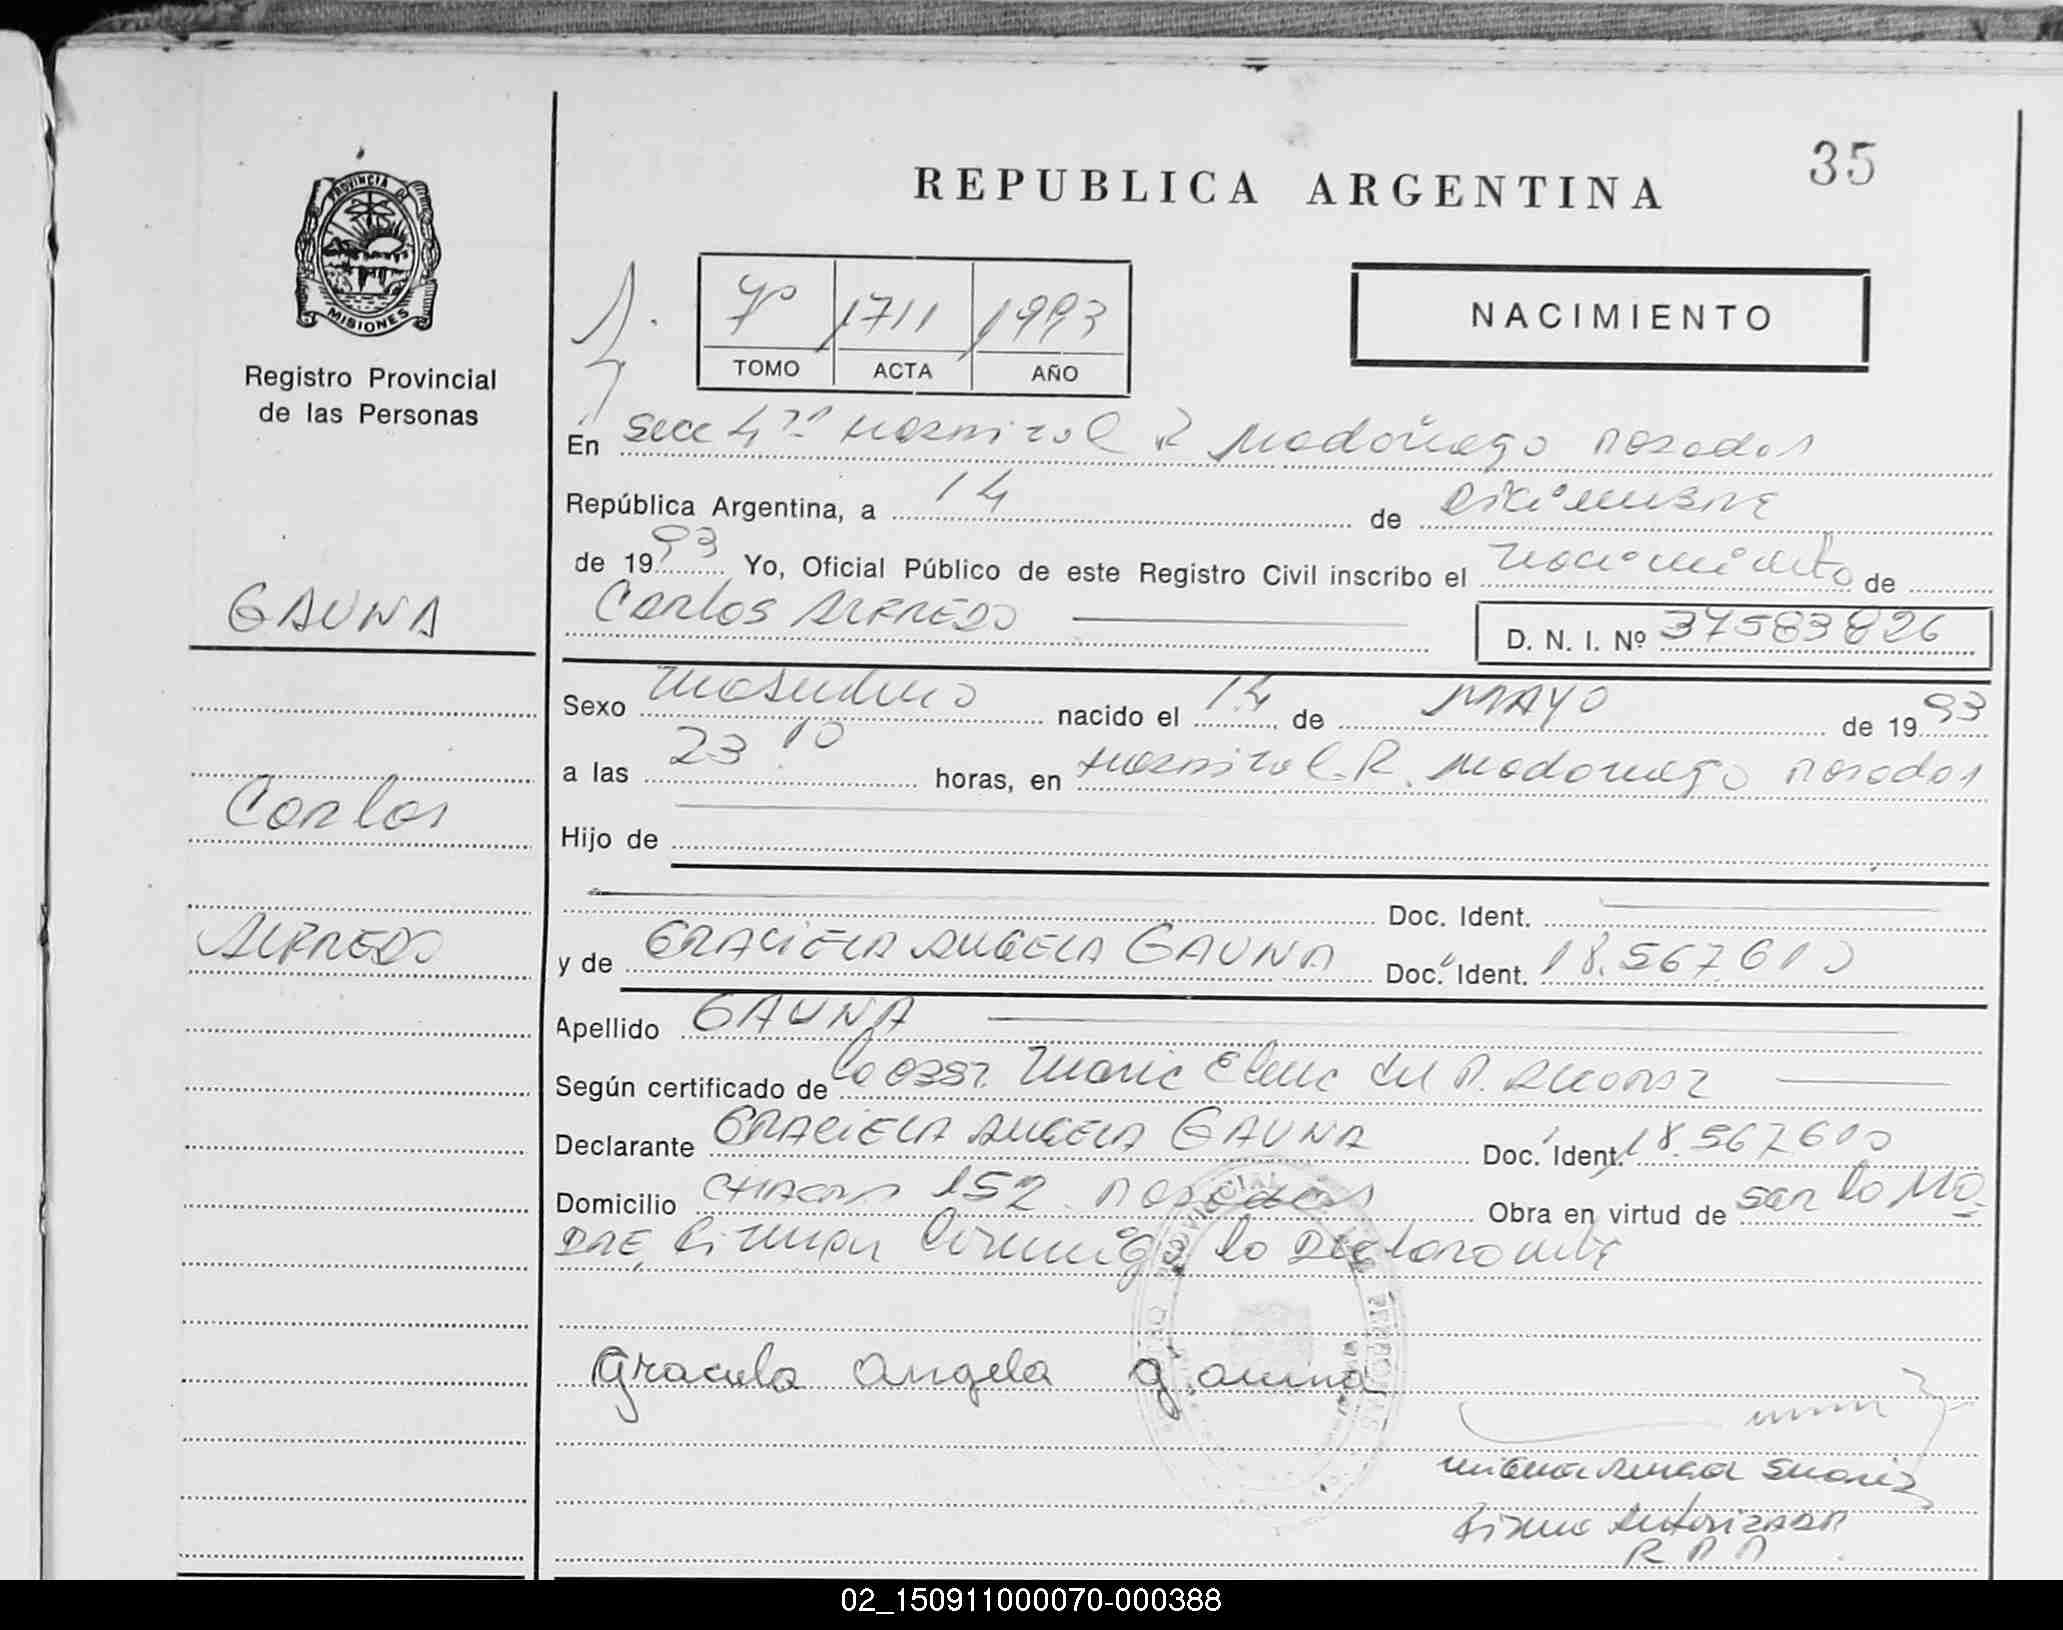 35
REPUBLICA ARGENTINA
PROVINCIA DE
MISIONES
Registro Provincial
de las Personas
7º 1711 1993
TOMO ACTA AÑO
NACIMIENTO
En Secc 4ta Hospital R Madariaga Posadas
República Argentina, a 14 de Diciembre
de 1993 Yo, Oficial Público de este Registro Civil inscribo el nacimiento de
Carlos ALFREDO
D. N. I. Nº 37583826
GAUNA
Carlos
ALFREDO
Sexo masculino nacido el 14 de MAYO de 1993
a las 23 10 horas, en Hospital R. Madariaga Posadas
Hijo de
Doc. Ident.
y de GRACIELA ANGELA GAUNA Doc. Ident. 18.567610
Apellido GAUNA
Según certificado de la Obst. Maria Elena del P.
Declarante GRACIELA ANGELA GAUNA Doc. Ident. 18.567610
Domicilio CHACRA 152 Posadas Obra en virtud de ser la MA
DRE, Firman conmigo la Declarante
Graciela Angela Gauna
Suarez
Firma Autorizada
R P P
02_150911000070-000388